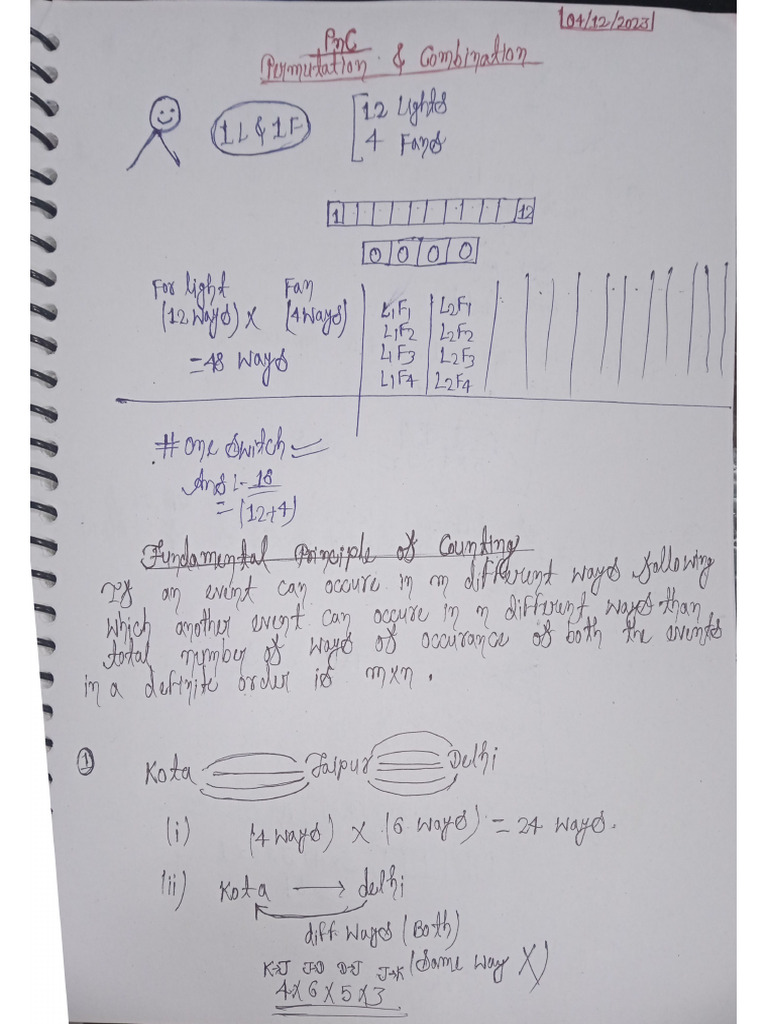 04/12/2023
PnC
Permutation & Combination
1L & 1F
12 Lights
4 Fans
1 12
0 0 0 0
For light Fan
(12 ways) x (4 ways)
= 48 ways
L1F1 L2F1
L1F2 L2F2
L1F3 L2F3
L1F4 L2F4
# One Switch
Ans :- 16
= (12+4)
Fundamental Principle of Counting
If an event can occure in m different ways following
which another event can occure in n different ways than
total number of ways of occurance of both the events
in a definite order is mxn.
1 Kota Jaipur Delhi
(i) (4 ways) x (6 ways) = 24 ways.
(ii) Kota → delhi
diff ways (Both)
K-J J-D D-J J-K (Same way X)
4x6x5x3